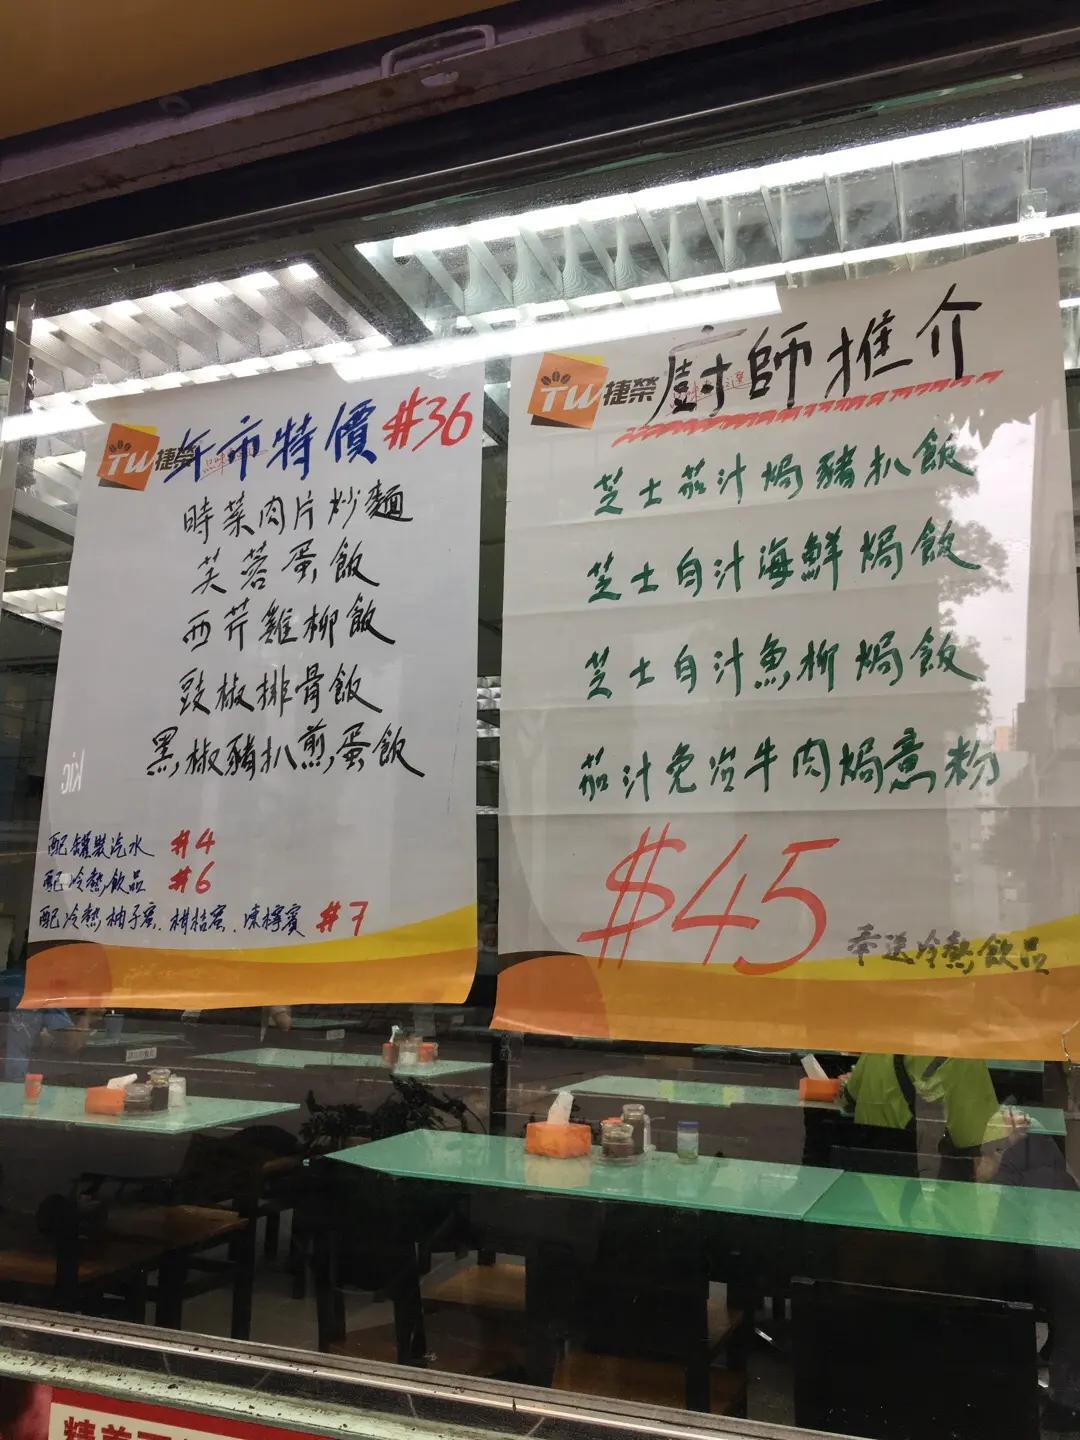 TW 捷榮
午市特價 $36
時菜肉片炒麵
芙蓉蛋飯
西芹雞柳飯
豉椒排骨飯
黑椒豬扒煎蛋飯
配罐裝汽水 $4
配冷熱飲品 $6
配冷熱柚子蜜.柑桔蜜.凍檸賓 $7
TW 捷榮
廚師推介
芝士茄汁焗豬扒飯
芝士白汁海鮮焗飯
芝士白汁魚柳焗飯
茄汁免治牛肉焗意粉
$45
奉送冷熱飲品